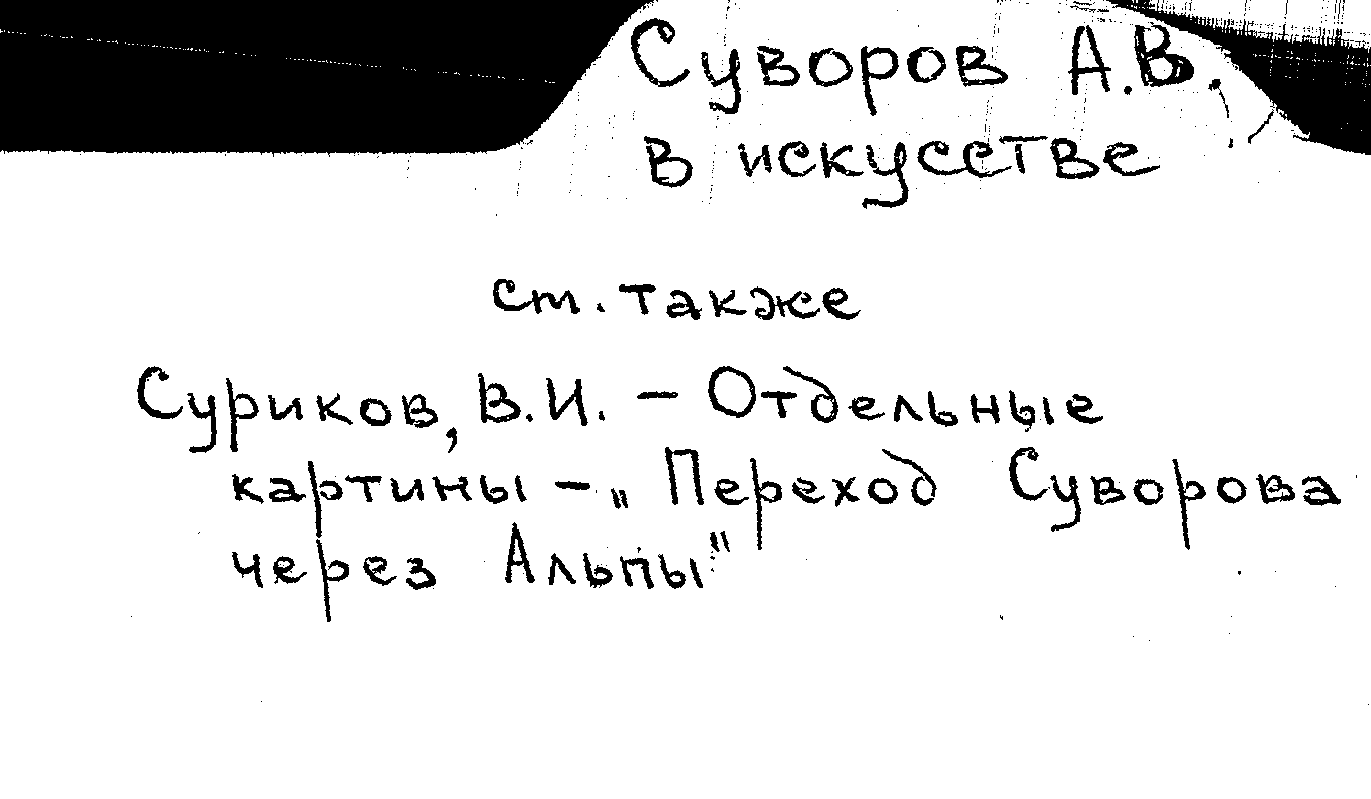 Суворов А.В.
в искусстве
см. также
Суриков, В.И. – Отдельные
картины – „Переход Суворова
через Альпы"